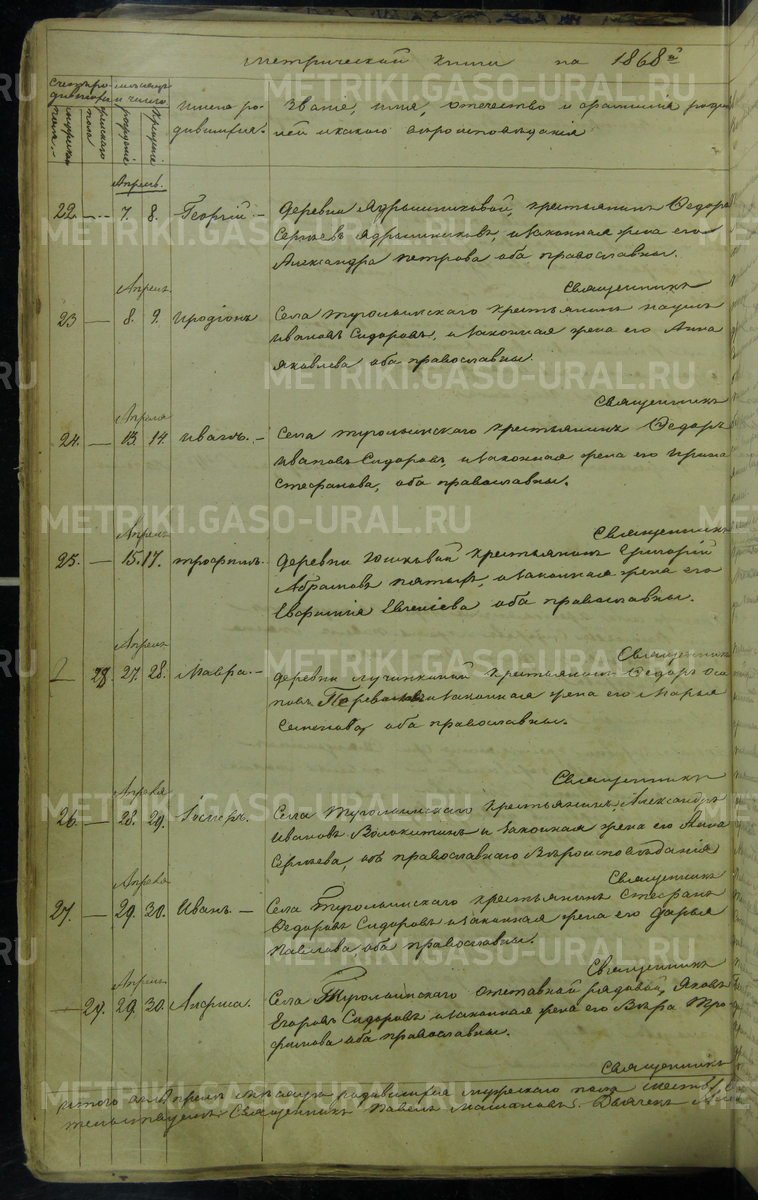 Метрической книги на 1868й
Счетъ родившихся
мужеска пола
женскаго пола
Месяцъ и число
рожденiе
крещенiе
Имена родившихся.
Званiе, имя, отчество и фамилiя родителей и какого вероисповеданiя
Апрель.
22. — 7. 8. Георгiй. — деревни Ядрышниковой, крестьянинъ Федоръ
Сергеевъ Ядрышниковъ, и законная жена его
Александра Петрова оба православны.
Священникъ
Апреля
23 — 8. 9. Иродiонъ Села Туголымскаго крестьянинъ Наумъ
Ивановъ Сидоровъ, и законная жена его Анна
Яковлева оба православны.
Священникъ
Апреля
24. — 13. 14. Иванъ. — Села Туголымскаго крестьянинъ Федоръ
Ивановъ Сидоровъ, и законная жена его Ирина
Стефанова, оба православны.
Священникъ
Апреля
25. — 15. 17. Трофимъ. деревни Юшковой крестьянинъ Григорiй
Абрамовъ и законная жена его
оба православны.
Священникъ
Апреля
28. 27. 28. Мавра. — деревни Лучинкиной крестьянинъ Федоръ Оси
повъ и законная жена его Марья
Семенова, оба православны.
Священникъ
Апреля
26. — 28. 29. Села Туголымскаго крестьянинъ Александръ
Ивановъ Волокитинъ и законная жена его Анна
Сергеева, об. православнаго Вероисповеданiя
Священникъ
Апреля
27. — 29. 30. Иванъ. — Села Туголымскаго крестьянинъ Стефанъ
Федоровъ Сидоровъ и законная жена его Дарья
Павлова, оба православны.
Священникъ
Апреля
— 29. 29. 30. Анфиса. Села Туголымскаго отставной рядовой, Яковъ
Егоровъ Сидоровъ и законная жена его Вера Тро
фимова оба православны.
Священникъ
апреле месяце родившихся мужескаго пола шесть,
Священникъ Павелъ Дьячекъ
METRIKI.GASO-URAL.RU